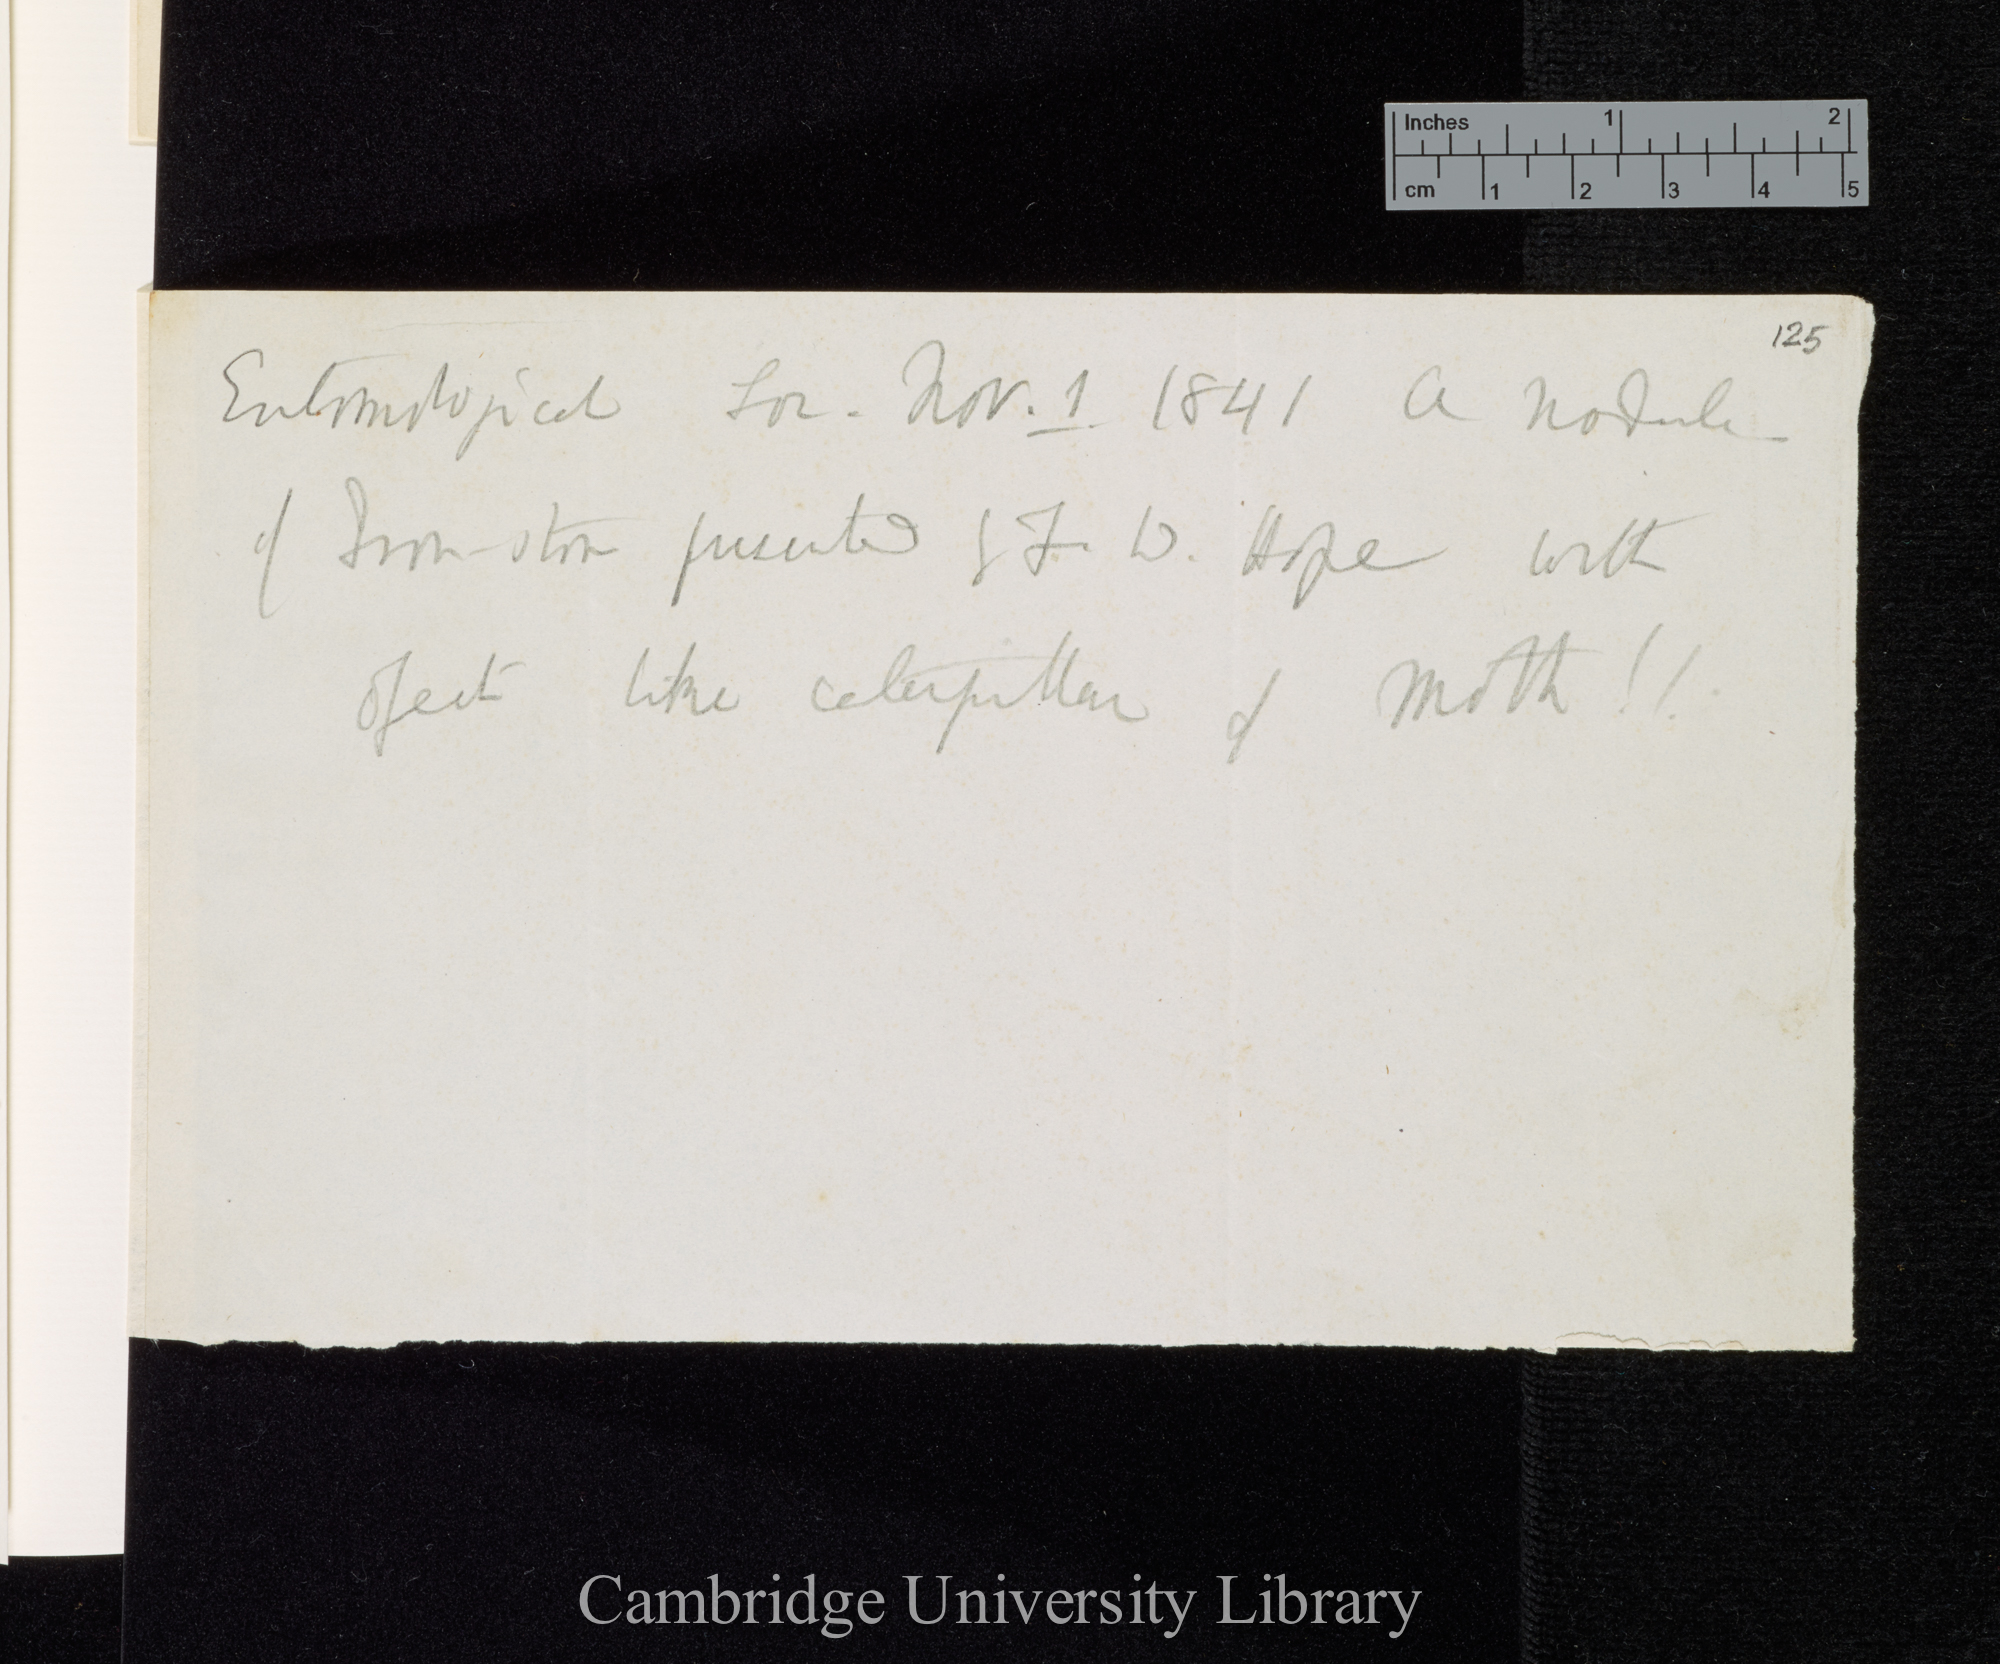 Inches 1 2
cm 1 2 3 4 5
125
Entomological Soc. Nov. 1 1841 A nodule
of Iron-stone presented by F. W. Hope with
object like caterpillar of Moth!!
Cambridge University Library